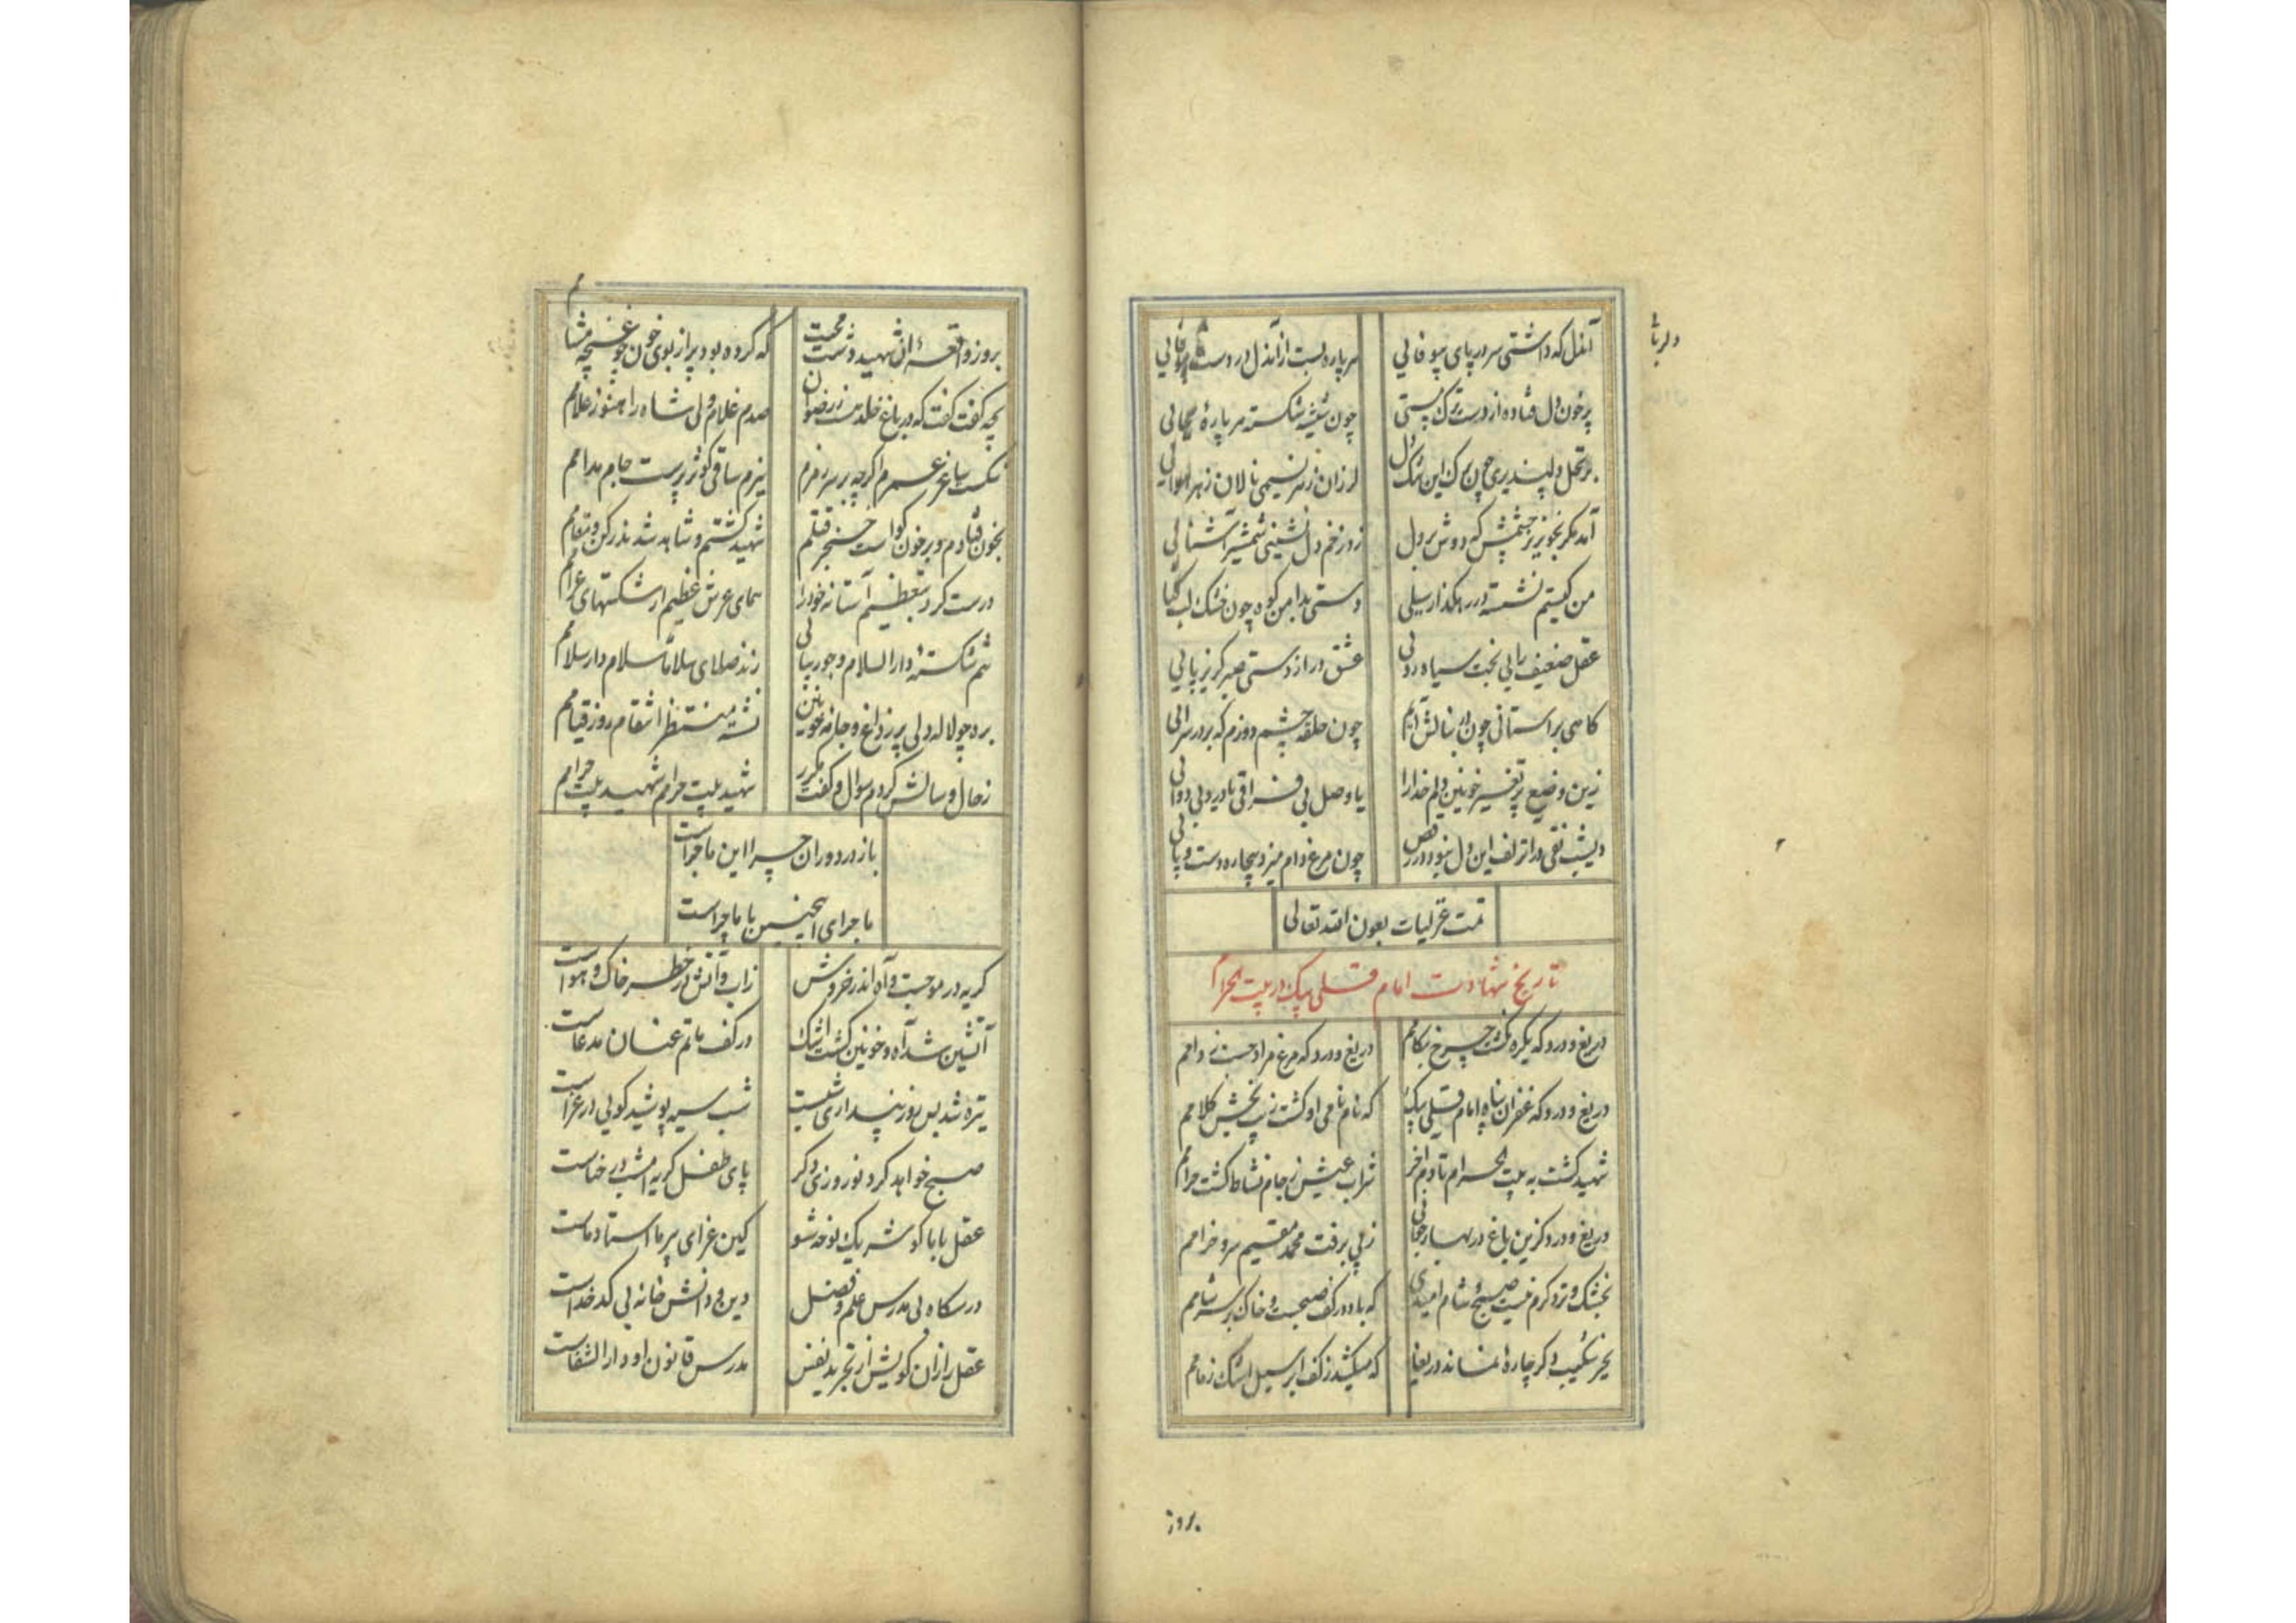 دلربائی
آندل که داشتی سر در پای بیوفائی
هر پاره ایست از آندل در دست
پرخون دل فتاده از دست ترک مستی
چون شیشه شکسته هر پارهٔ بجائی
بر تحمل دلپذیری چون برک این
لرزان ز هر نسیمی نالان ز هر هوائی
آمد مکر بخونریز چشمش که دوش بر دل
زد زخم دل نشینی شمشیر آشنائی
من کیستم نشسته در رهکذار سیلی
دستی بدامن کوه چون خشک لب کیائی
عقل ضعیف رائی بخت سیاه روئی
عشق دراز دستی صبر کریز پائی
کاهی بر آستانی چون در بنالش آیم
چون حلقه چشم دوزم که بر در سرائی
زین وضع پر تغییر خونین دلم خدا را
یا وصل بی فراقی یا درد بی دوائی
دیشب نقی در آن زلف این دل نبود در رقص
چون مرغ دام میزد بیچاره دست و پائی
تمت غزلیات بعون الله تعالی
تاریخ شهادت امام قلی بیک در بیت الحرام
دریغ و درد که یکره نکشت چرخ بکامم
دریغ و درد که مرغ مراد جست ز دامم
دریغ و درد که غفران پناه امام قلی بیک
که نام نامی او کشت زیب بخش کلامم
شهید کشت به بیت الحرام تا دم آخر
شراب عیش ز جام نشاط کشت حرامم
دریغ و درد کزین باغ در بهار جوانی
ز پی برفت محمد مقیم سرو خرامم
بخشک و تر د کرم نیست صبح و شام امیدی
که باد در کف صبحست و خاک بر سر شامم
بجز شکیب دکر چارهٔ نماند دریغا
که میکشد ز کف ابر سیل اشک زمامم
بروز
بروز واقعه آن شهید دشت محبت
که کرده بود پر از بوی خون چو غنچه مشامم
بچه کفت کفت که در باغ خلد هست ز رضوان
صدم غلام ولی شاه را هنوز غلامم
شکست ساغر عمرم اکر چه بر سر زمزم
ببزم ساقی کوثر پرست جام مدامم
بخون فتادم و بر خون کواست خنجر قتلم
شهید کشتم و شاهد شد ند رکن و مقامم
درست کرد بتعظیم آستانه خود را
همای عرش عظیم از شکستهای عظامم
شم شکسته دار السلام و حور بیانی
زند صلای سلاماً سلام دار سلامم
برد چو لاله دلی پر ز داغ و جامه خونین
نشسته منتظر انتقام روز قیامم
ز حال و سالش کردم سوال و کفت مکرر
شهید بیت حرامم شهید بیت حرامم
باز در دوران چرا این ماجراست
ماجرای اینچنین با ما چراست
کریه در موجست و آه اندر خروش
زاب و آتش در خطر خاک و هواست
آتشین شد آه و خونین کشت اشک
در کف ماتم عنان مدعاست
تیره شد بس روز پنداری شبست
شب سیه پوشید کوئی در عزاست
صبح خواهد کرد نوروزی دکر
پای طفل کریه امشب در حناست
عقل بابا کو شریک نوحه شو
کین عزای پیر ما استاد ماست
درسکاه بی مدرس علم و فضل
دین و دانش خانه بی کدخداست
عقل را زان کو بیش از تجرید نفس
مدرس قانون او دار الشفاست